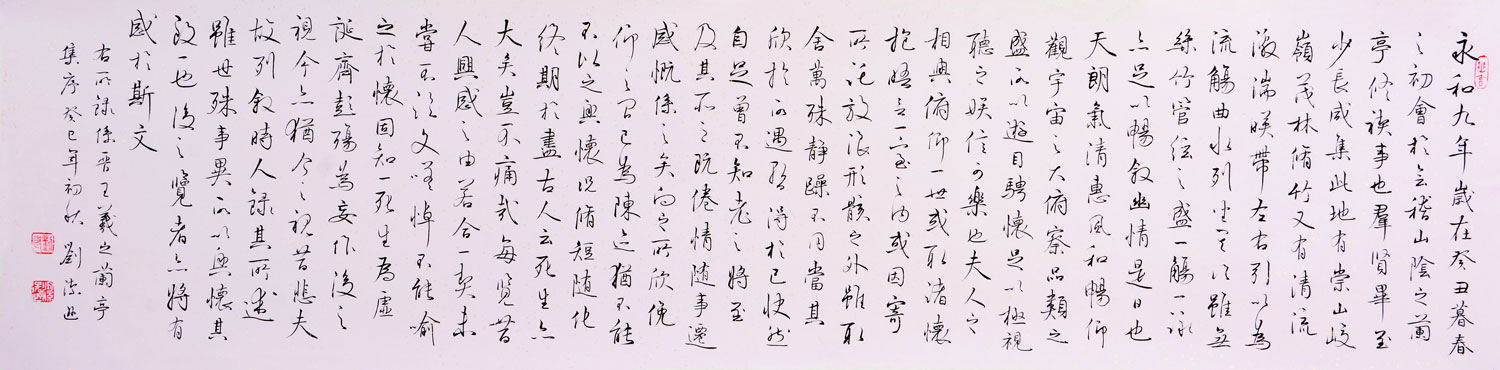 永和九年歲在癸丑暮春
之初會於會稽山陰之蘭
亭修禊事也羣賢畢至
少長咸集此地有崇山峻
嶺茂林脩竹又有清流
激湍暎帶左右引以為
流觴曲水列坐其次雖無
絲竹管弦之盛一觴一詠
亦足以暢敘幽情是日也
天朗氣清惠風和暢仰
觀宇宙之大俯察品類之
盛所以遊目騁懷足以極視
聽之娛信可樂也夫人之
相與俯仰一世或取諸懷
抱晤言一室之內或因寄
所託放浪形骸之外雖取
舍萬殊靜躁不同當其
欣於所遇暫得於己快然
自足曾不知老之將至
及其所之既倦情隨事遷
感慨係之矣向之所欣俛
仰之間已為陳迹猶不能
不以之興懷況脩短隨化
終期於盡古人云死生亦
大矣豈不痛哉每覽昔
人興感之由若合一契未
嘗不臨文嗟悼不能喻
之於懷固知一死生為虛
誕齊彭殤為妄作後之
視今亦猶今之視昔悲夫
故列敘時人錄其所述
雖世殊事異所以興懷其
致一也後之覽者亦將有
感於斯文
右所錄係晉王羲之蘭亭
集序癸巳年初秋劉